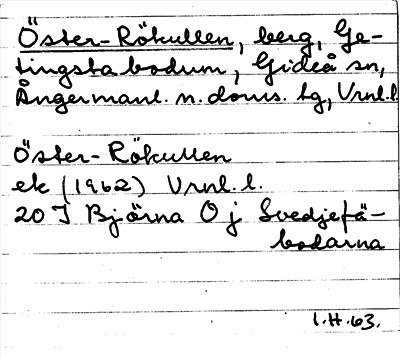 Öster-Rökullen, berg, Ge-
tingstabodum, Gideå sn,
Ångermanl. n. doms. tg, Vrnl.l.
Öster-Rökullen
ek (1962) Vrnl. l.
20 I Björna O j Svedjefä-
bodarna
I.H.63.